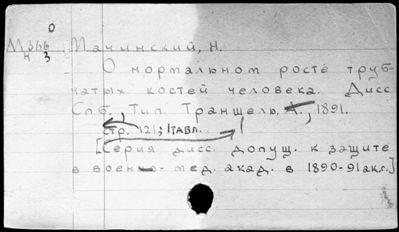 О
М 366 Мачинский, Н.
Н 3
О нормальном росте труб-
чатых костей человека. Дисс
Спб., Тип. Траншель, А., 1891.
стр. 121; 1 табл.
[Серия дисс. допущ. к защите
в военно-мед. акад. в 1890-91 ак.г.]